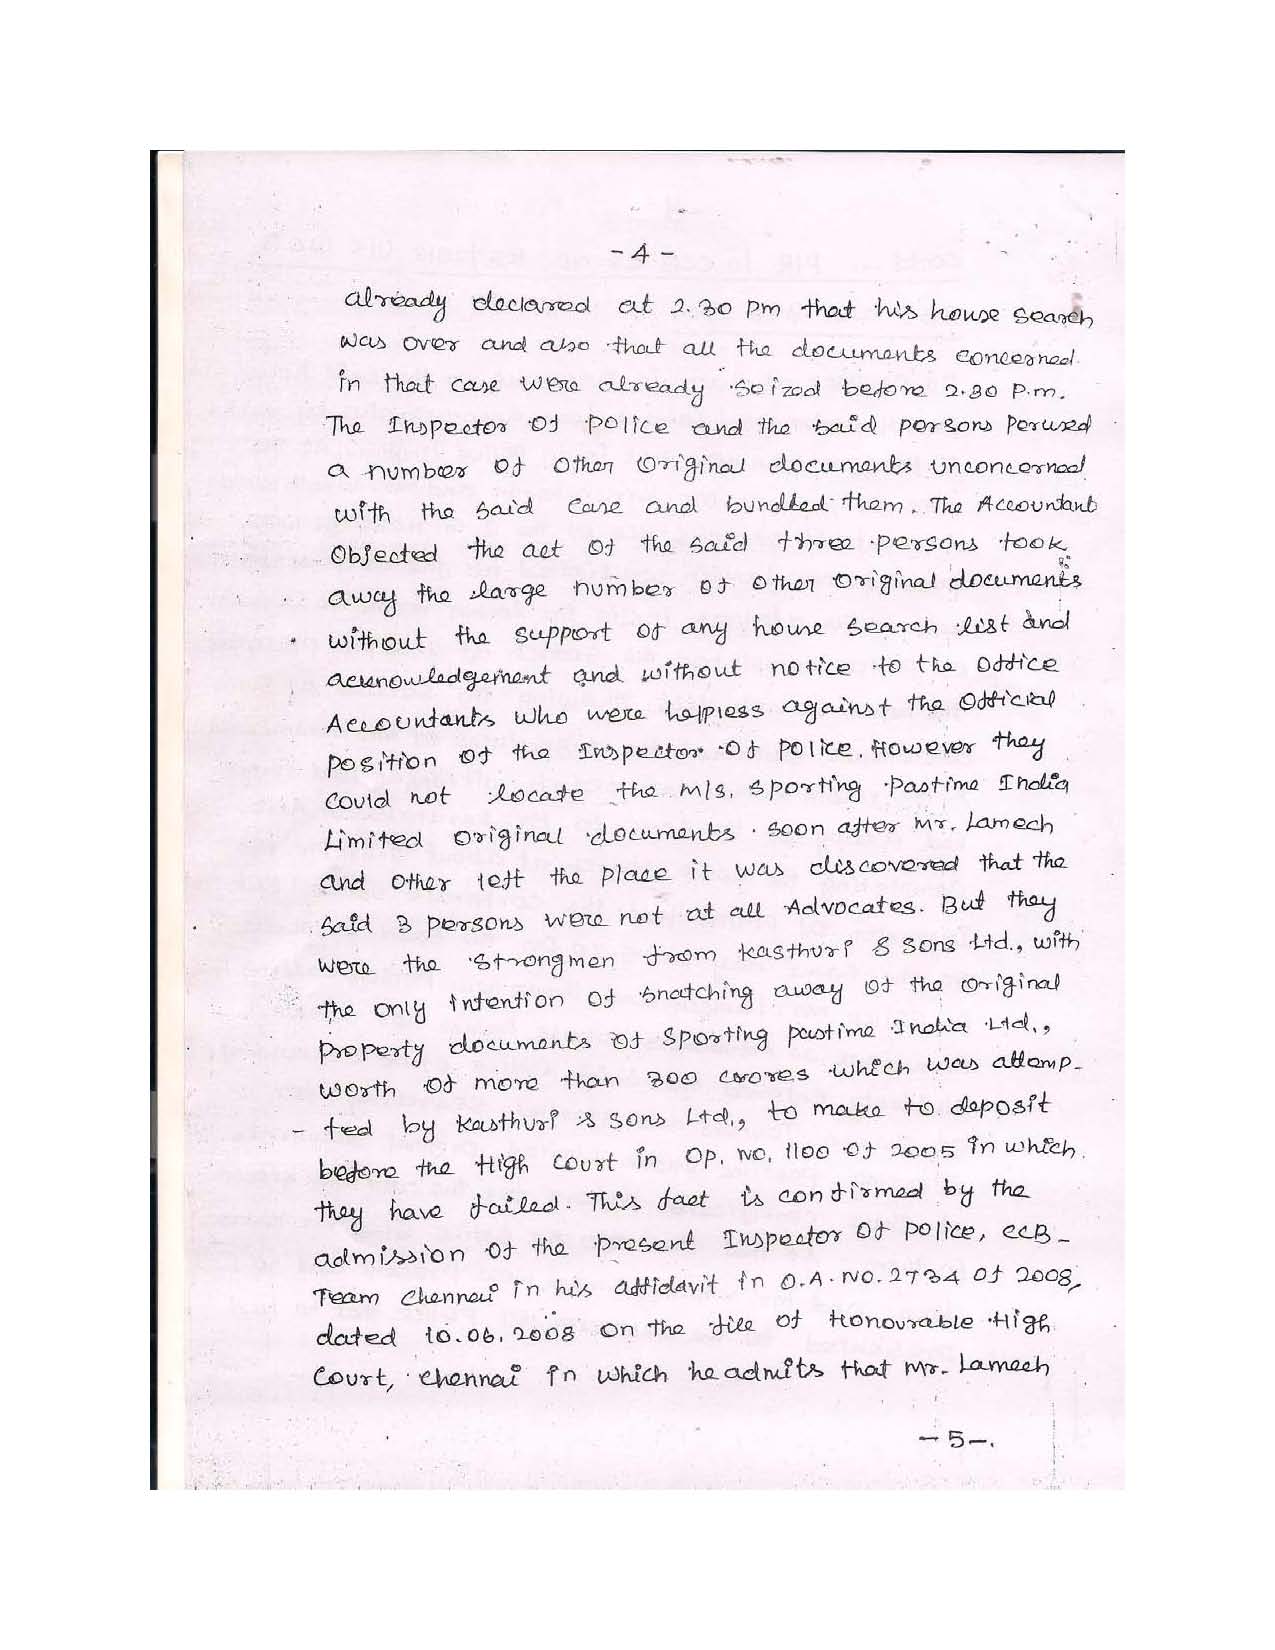 - 4 -
already declared at 2.30 pm that his house search
was over and also that all the documents concerned
in that case were already seized before 2.30 P.m.
The Inspector of police and the said persons perused
a number of other original documents unconcerned
with the said case and bundled them. The Accountant
Objected the act of the said three persons took
away the large number of other original documents
without the support of any house search list and
acknowledgement and without notice to the office
Accountants who were helpless against the official
position of the Inspector of police. However they
could not locate the M/s. Sporting Pastime India
Limited original documents. soon after Mr. Lamech
and other left the place it was discovered that the
said 3 persons were not at all Advocates. But they
were the strongmen from Kasthuri & Sons Ltd., with
the only intention of snatching away of the original
property documents of Sporting pastime India Ltd.,
worth of more than 300 crores which was attemp-
- ted by Kasthuri & Sons Ltd., to make to deposit
before the High court in Op. No. 1100 of 2005 in which
they have failed. This fact is confirmed by the
admission of the present Inspector of police, CCB-
Team Chennai in his affidavit in O.A. NO. 2734 of 2008,
dated 10.06.2008 on the file of Honourable High
Court, Chennai in which he admits that Mr. Lamech
- 5 -.